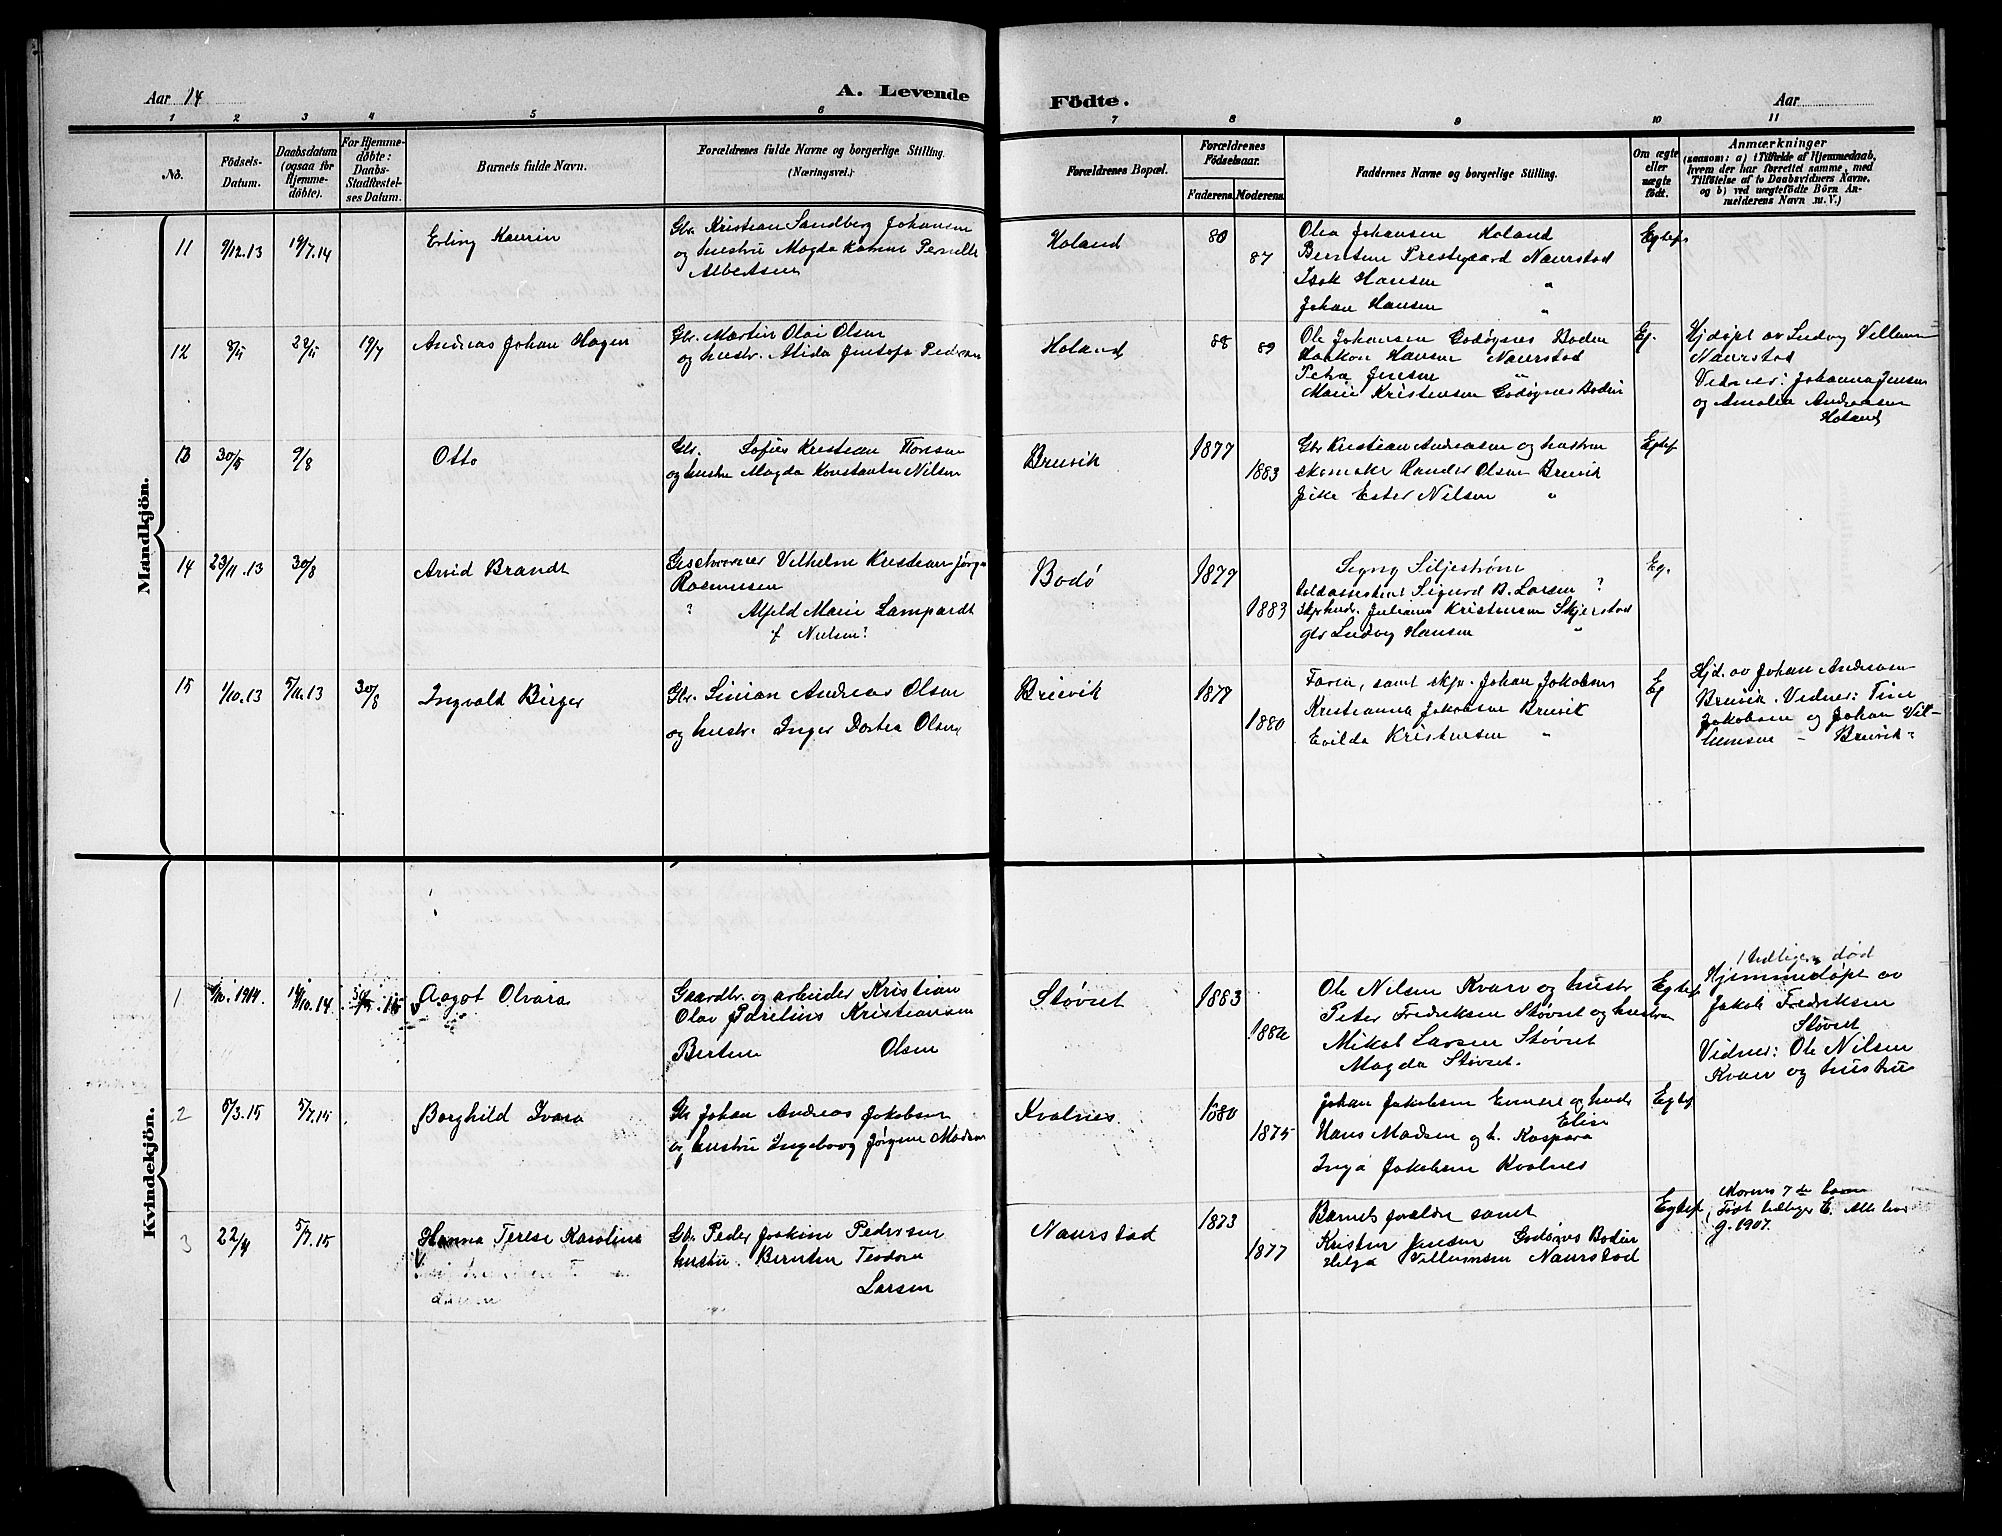 Aar 14
A. Levende
Födte.
Aar
1 2 3 4 5 6 7 8 9 10 11
No.
Födsels-Datum.
Daabsdatum (ogsaa for Hjemmedöbte).
For Hjemmedöbte: Daabs-Stadfæstelses Datum.
Barnets fulde Navn.
Forældrenes fulde Navne og borgerlige Stilling. (Næringsvei.)
Forældrenes Bopæl.
Forældrenes Födselsaar.
Faderens. Moderens.
Faddernes Navne og borgerlige Stilling.
Om ægte eller uægte födt.
Anmærkninger
(saasom: a) i Tilfælde af Hjemmedaab, hvem der har forrettet samme, med Tilföielse af to Daabsvidners Navne, og b) ved uægtefödte Börn Anmelderens Navn m. V.)
Mandkjön.
11 9/12.13 19/7.14 Erling Kaurin
Gbr. Kristian Sandberg Johansen
og hustru Magda Pernille
Albertsen
Holand 80 87
Olea Johansen Holand
Berntine Prestegaard Naurstad
Isak Hansen "
Johan Hansen "
Egtef
12 19/7 Andreas Johan Hagen
Gbr. Martin Olai Olsen
og hustr. Alida Justofa Pedersen
Holand 88 89
Ole Johansen Godøynes Boden
Haakon Hansen Naurstad
Petra Jensen "
Marie Kristensen Godøynes Bodin
Eg.
Hjdøpt av Ludvig Villum
Naurstad
Vidner: Johanna Jensen
og Amalia Andreasen
Holand
13 30/5 9/8 Otto
Gbr. Sofus Kristian Torsen
og hustru Magda Konstantse Nilsen
Breivik 1877 1883
Gbr Kristian Andreasen og hustru
skomaker Rander Olsen Breivik
Pike Ester Nilsen "
Egtef
14 23/11.13 30/8 Arvid Brandt
Vilhelm Kristian Jörg.
Rasmussen
" Alfeld Marie Lampardt
f. Nielsen
Bodö 1879 1883
Signy Siljeström
Toldassistent Sigurd B. Larsen
Juliane Kristensen Skjerstad
gbr Ludvig Hansen "
Eg.
15 1/10.13 5/11.13 30/8 Ingvald Birger
Gbr. Simon Andreas Olsen
og hustr. Inger Dortea Olsen
Breivik 1879 1880
Faren, samt skp. Johan Jakobsen
Kristianna Jakobsen Breivik
Evilda Kristensen "
Eg
Hjd. av Johan Andreasen
Breivik. Vidner: Tine
Jakobsen og Johan Vil-
lumsen - Breivik
Kvindekjön.
1 14/10.14 Aagot Olvara
Gaardbr. og arbeider Kristian
Olai Kristiansen
Bertine Olsen
Støvset 1883 1886
Ole Nilsen Kvarv og hustr
Peter Fredriksen Støvset og hustru
Mikal Larsen Støvset
Magda Støvset.
Egtef
1 tidligere død
Hjemmedøpt av
Jakob Fredriksen
Støvset
Vidner: Ole Nilsen
Kvarv og hustru
2 5/3.15 5/7.15 Borghild Ivara
Gb Johan Andreas Jakobsen
og hustru Ingeborg Jørgine Madsen
Kvalnes 1880 1875
Johan Jakobsen
Elise
Hans Madsen og h. Kaspara
Inga Jakobsen Kvalnes
Egtef
3 22/4 5/7.15 Hanna Terese Karoline
Gb. Peder Joakim Pedersen
hustru. Berntine Teodora
Larsen
Naurstad 1873 1877
Barnets forældre samt
Kristine Jensen Godønes Bodin
Helga Villumsen Naurstad
Egtef
Morens 7de barn
Født tidligere E. Alle lever
g. 1907.